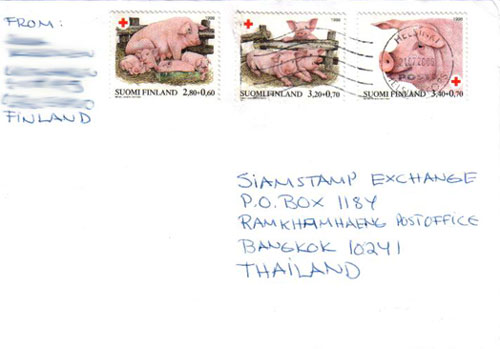 FROM:
FINLAND
1998
SUOMI FINLAND 2,80+0,60
1998
SUOMI FINLAND 3,20+0,70
1998
SUOMI FINLAND 3,40+0,70
HELSINKI
POSTI
SIAMSTAMP EXCHANGE
P.O. BOX 1184
RAMKHAMHAENG POSTOFFICE
BANGKOK 10241
THAILAND